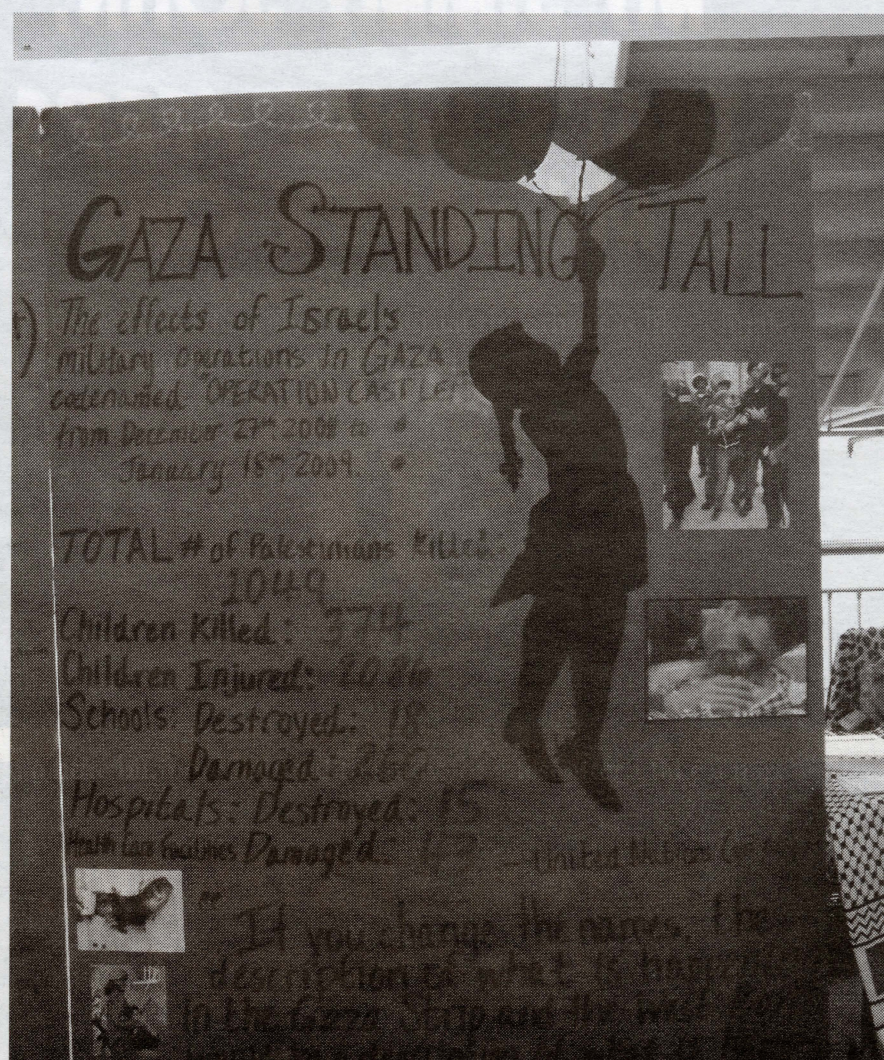 GAZA STANDING TALL
The effects of Israels
military operations in GAZA
codenamed "OPERATION CAST LE
from December 27th 2008 to
January 18th 2009.
TOTAL # of Palestinians Killed:
1049
Children Killed: 374
Children Injured: 2086
Schools: Destroyed: 18
Damaged:
Hospitals: Destroyed: 15
Health Care Facilities Damaged: 43 – United Nations
" If you change the names, the
description of what is
in the Gaza Strip and the West